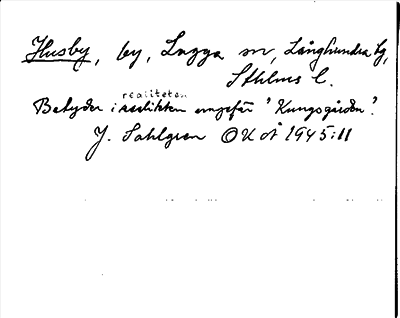 Husby, by, Lagga sn, Långhundra hd,
Sthlms l.
realiteten
Betyder i realiteten ungefär "Kungsgården".
J. Sahlgren OUÅ 1945:11